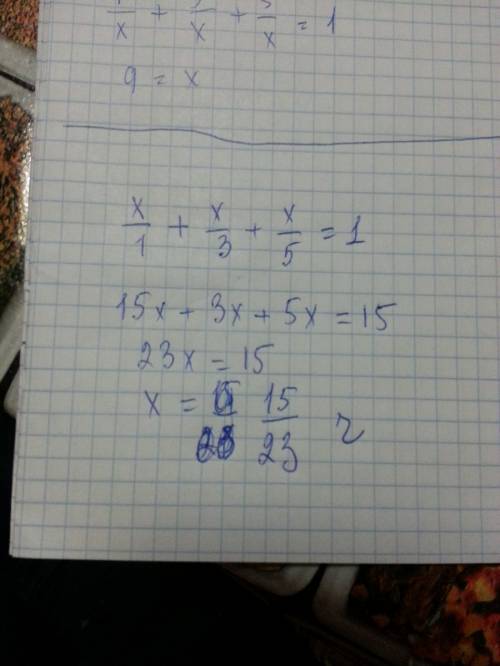 1/x + 3/x + 5/x = 1
9 = x
x/1 + x/3 + x/5 = 1
15x + 3x + 5x = 15
23x = 15
x = 15/23 ч